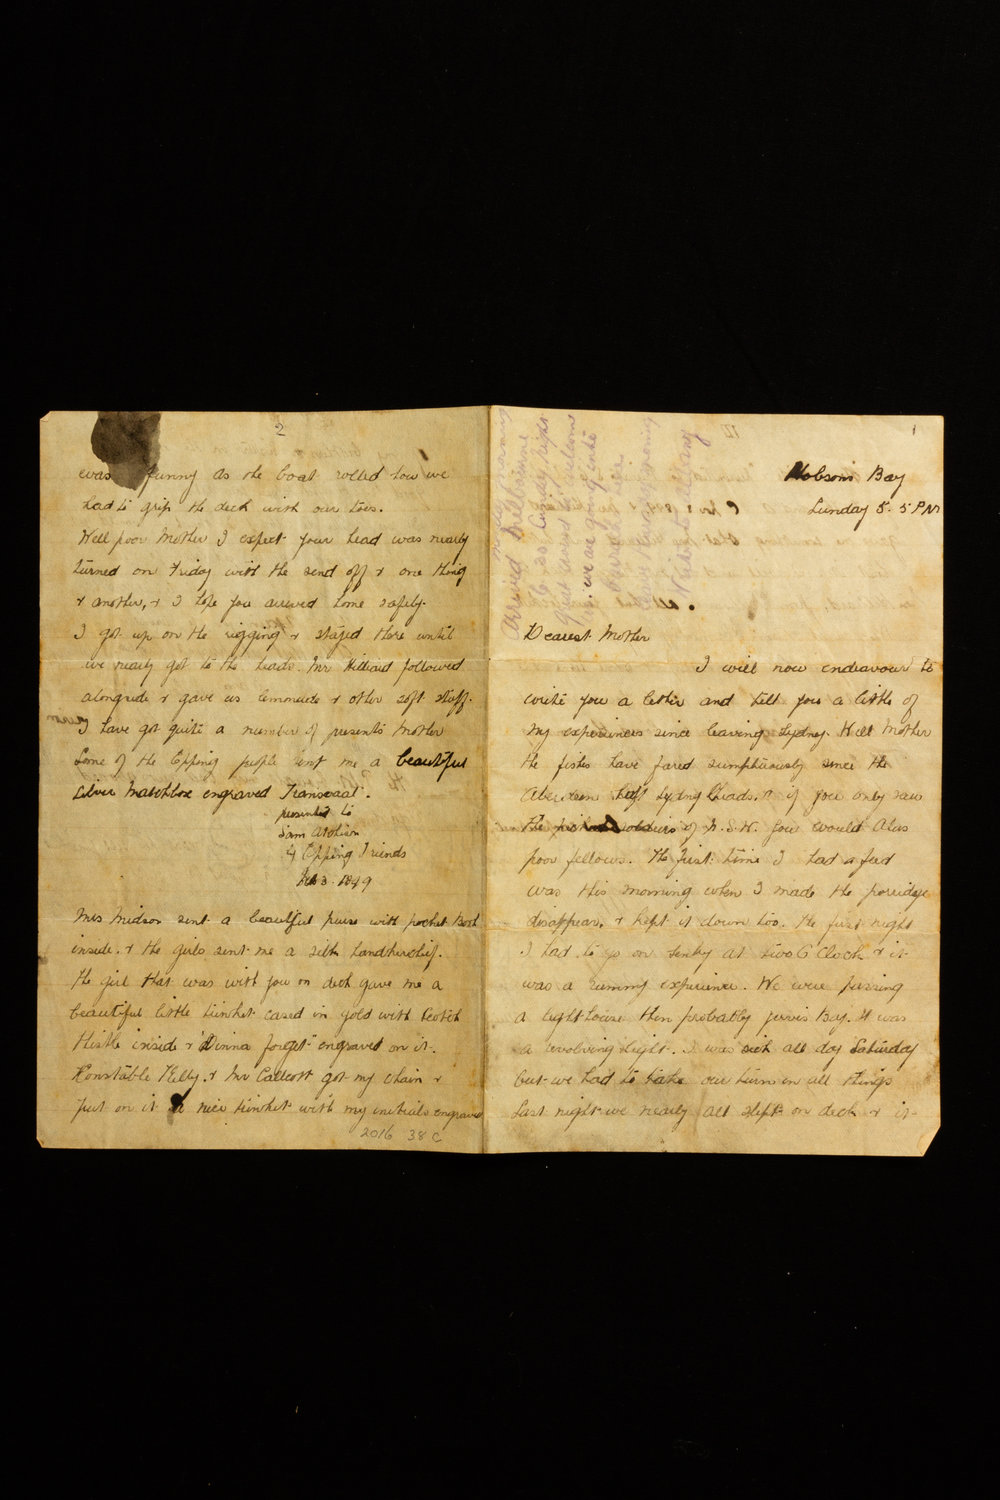 1
Hobsons Bay
Sunday 5. 5 PM
Arrived Melbourne
6.30 Sunday night
Dearest Mother
I will now endeavour to
write you a letter and tell you a little of
my experiences since leaving Sydney. Well Mother
the fishes have fared sumptuously since the
Aberdeen left Sydney Heads. & if you only saw
the soldiers of N.S.W. you would Alas
poor fellows. The first time I had a feed
was this morning when I made the porridge
disappear, & kept it down too. The first night
I had to go on sentry at two O Clock & it
was a rummy experience. We were passing
a lighthouse then probably Jervis Bay. It was
a revolving light. I was sick all day Saturday
but we had to take our turn in all things
Last night we nearly all slept on deck & it
2
was funny as the boat rolled how we
had to grip the deck with our toes.
Well poor Mother I expect your head was nearly
turned on Friday with the send off & one thing
& another, & I hope you arrived home safely.
I got up on the rigging & stayed there until
we nearly got to the heads. Mr Hilliard followed
alongside & gave us lemonade & other soft stuff.
I have got quite a number of presents Mother
Some of the Epping people sent me a beautiful
silver matchbox engraved Transvaal.
presented to
Sam
by Epping Friends
1899
Mrs Midson sent a beautiful purse with pocket book
inside. & the girls sent me a silk handkerchief.
The girl that was with you on deck gave me a
beautiful little trinket cased in gold with Scotch
thistle inside & "Dinna forget" engraved on it.
Konstable Kelly. & Mr Callcott got my chain &
put on it a nice trinket with my initials engraved
2016 38 C